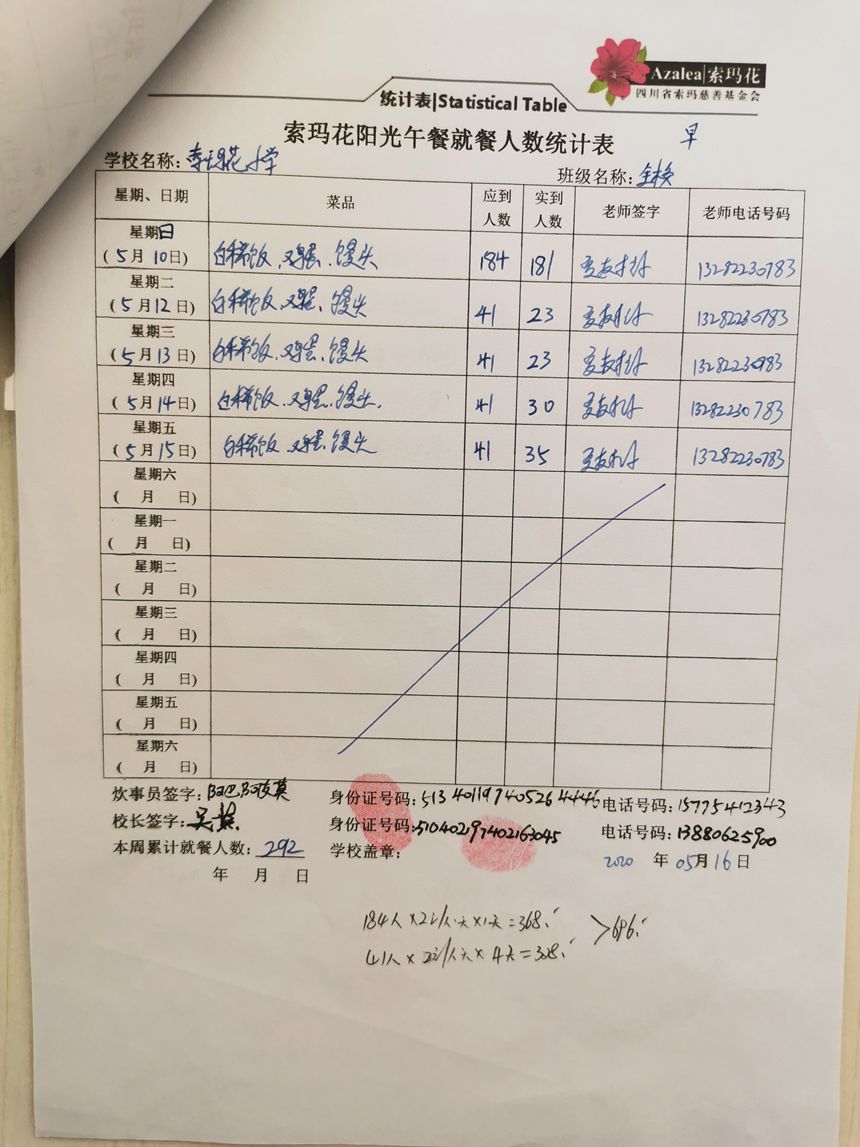 Azalea|索玛花
四川省索玛慈善基金会
统计表|Statistical Table
索玛花阳光午餐就餐人数统计表 早
学校名称: 索玛花小学 班级名称: 全校
星期、日期 菜品 应到人数 实到人数 老师签字 老师电话号码
星期日
(5月10日) 白稀饭、鸡蛋、馒头 184 181 13282230783
星期二
(5月12日) 白稀饭、鸡蛋、馒头 41 23 13282230783
星期三
(5月13日) 白稀饭、鸡蛋、馒头 41 23 13282230983
星期四
(5月14日) 白稀饭、鸡蛋、馒头. 41 30 13282230783
星期五
(5月15日) 白稀饭、鸡蛋、馒头 41 35 13282230783
星期六
( 月 日)
星期一
( 月 日)
星期二
( 月 日)
星期三
( 月 日)
星期四
( 月 日)
星期五
( 月 日)
星期六
( 月 日)
炊事员签字: 身份证号码: 513401197405264446 电话号码: 15775412343
校长签字: 身份证号码: 510402197402163045 电话号码: 13880625900
本周累计就餐人数: 292 学校盖章: 2020年05月16日
年 月 日
184人×2元/人·天×1天=368.
41人×2元/人·天×4天=328. >696.